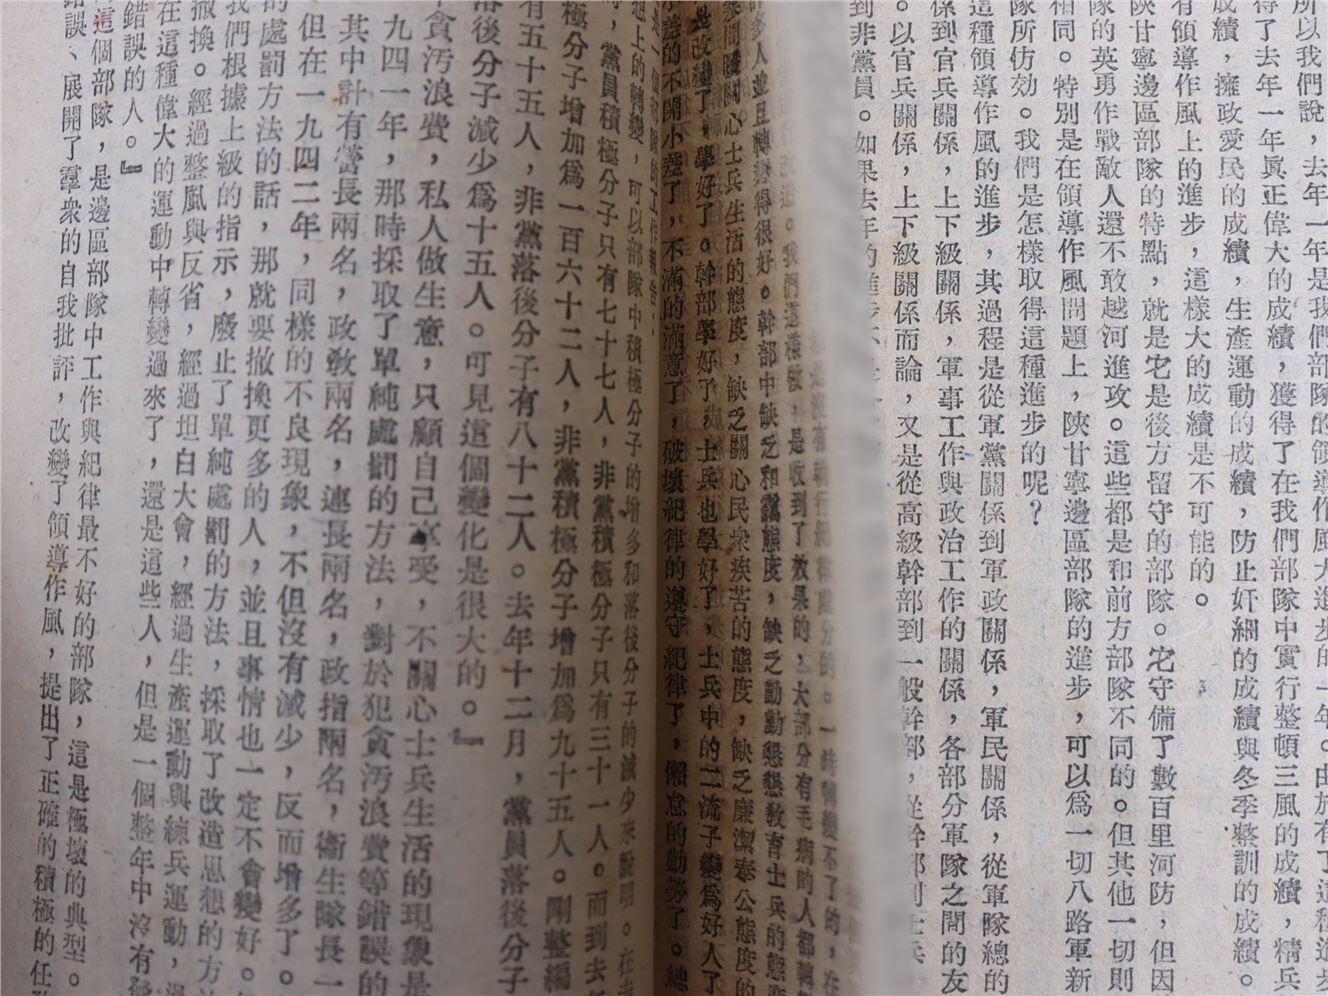 所以我們說，去年一年是我們部隊的領導作風大進步的一年。由於有了這種進步
得了去年一年眞正偉大的成績，獲得了在我們部隊中實行整頓三風的成績，精兵
成績，擁政愛民的成績，生產運動的成績，防止奸細的成績與冬季整訓的成績。
有領導作風上的進步，這樣大的成績是不可能的。
陝甘寧邊區部隊的特點，就是它是後方留守的部隊。它守備了數百里河防，但因
隊的英勇作戰敵人還不敢越河進攻。這些都是和前方部隊不同的。但其他一切則
相同。特別是在領導作風問題上，陝甘寧邊區部隊的進步，可以爲一切八路軍新
隊所仿効。我們是怎樣取得這種進步的呢？
這種領導作風的進步，其過程是從軍黨關係到軍政關係，軍民關係，從軍隊總的
係到官兵關係，上下級關係，軍事工作與政治工作的關係，各部分軍隊之間的友
。以官兵關係，上下級關係而論，又是從高級幹部到一般幹部，從幹部到士兵
到非黨員。如果去年的進步
一時轉變不了的，在
我們這樣做，是收到了效果的，大部分有毛病的人都轉變
多人並且轉變得很好。幹部中缺乏和靄態度，缺乏勤勤懇懇教育士兵的態度
關心士兵生活的態度，缺乏關心民衆疾苦的態度，缺乏廉潔奉公態度的
改變了，學好了。幹部學好了，士兵也學好了，士兵中的二流子變爲好人了
差的不開小差了，不滿的滿意了，破壞紀律的遵守紀律了，懶怠的勤勞了。總
想上的轉變，可以部隊中積極分子的增多和落後分子的減少來說明。在去
，黨員積極分子只有七十七人，非黨積極分子只有三十一人。而到去年
極分子增加爲一百六十二人，非黨積極分子增加爲九十五人。剛整編
有五十五人，非黨落後分子有八十二人。去年十二月，黨員落後分子
落後分子減少爲十五人。可見這個變化是很大的。』
貪汚浪費，私人做生意，只顧自己享受，不關心士兵生活的現象是
九四一年，那時採取了單純處罰的方法，對於犯貪汚浪費等錯誤的
其中計有營長兩名，政敎兩名，連長兩名，政指兩名，衞生隊長一
但在一九四二年，同樣的不良現象，不但沒有減少，反而增多了。
的處罰方法的話，那就要撤換更多的人，並且事情也一定不會變好。
我們根據上級的指示，廢止了單純處罰的方法，採取了改造思想的方
撤換。經過整風與反省，經過坦白大會，經過生產運動與練兵運動，
在這種偉大的運動中轉變過來了，還是這些人，但是一個整年中沒有發
錯誤的人。』
這個部隊，是邊區部隊中工作與紀律最不好的部隊，這是極壞的典型。
錯誤、展開了羣衆的自我批評，改變了領導作風，提出了正確的積極的任